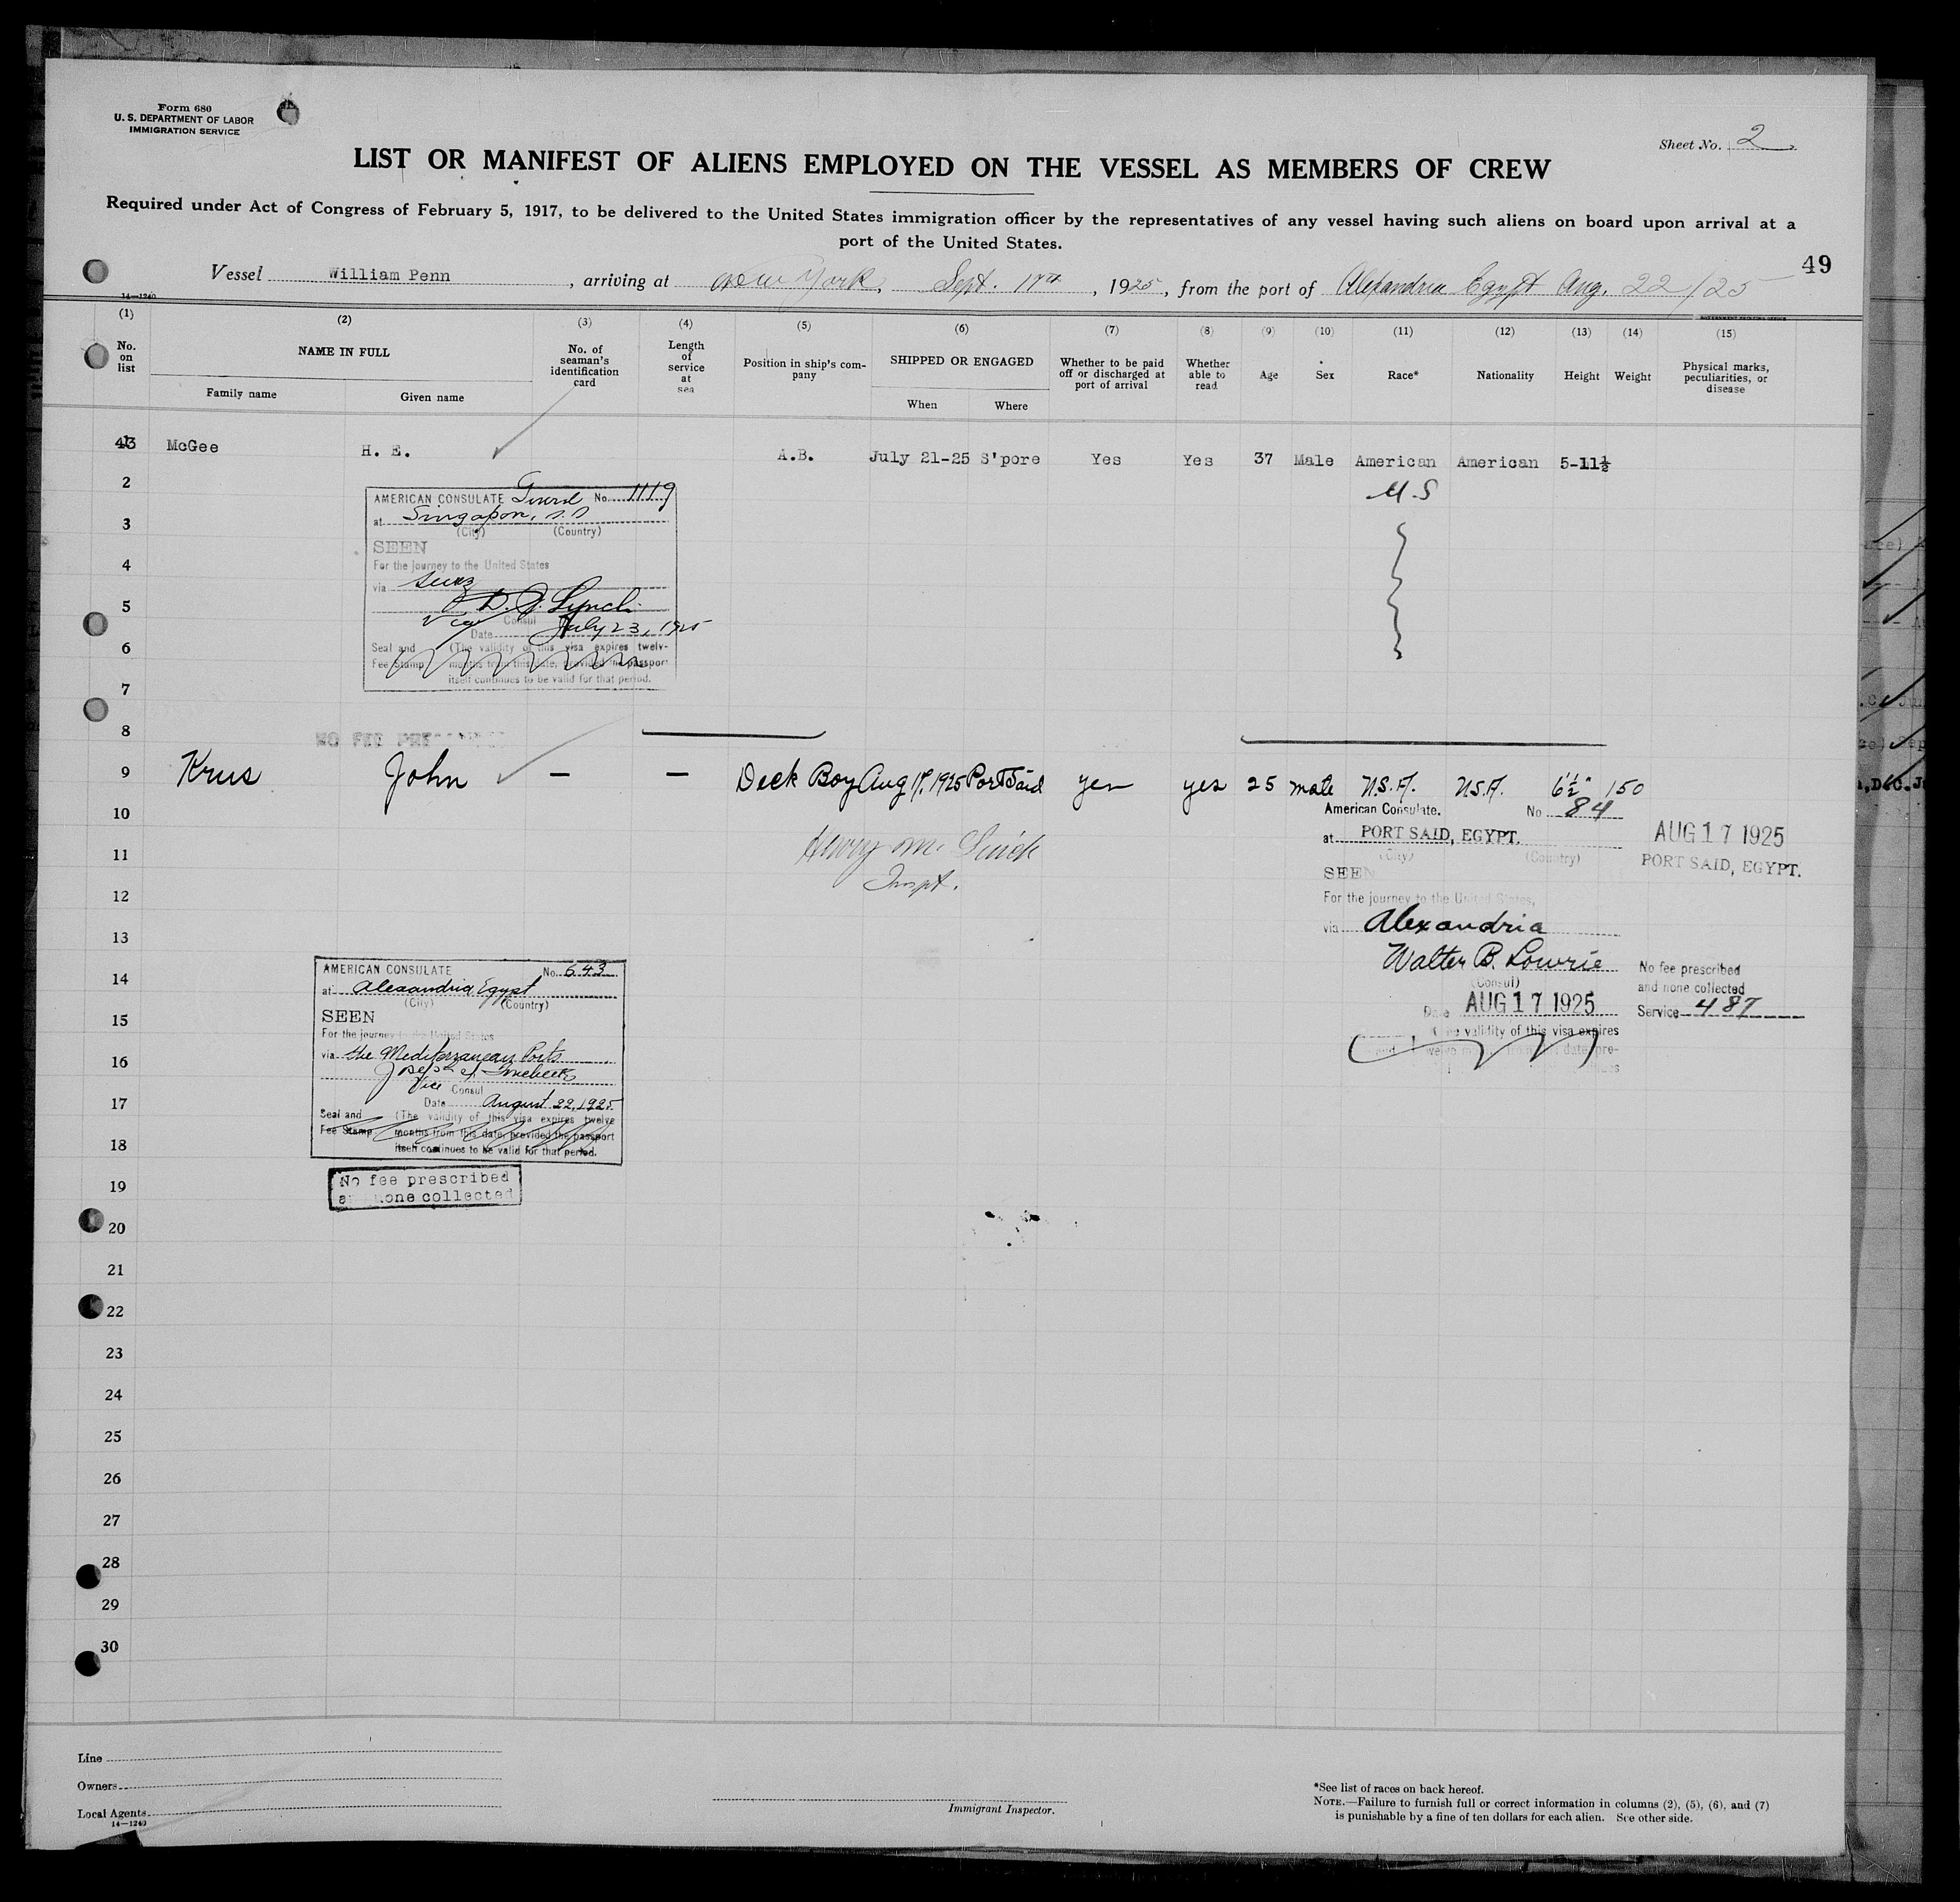 Form 680
U. S. DEPARTMENT OF LABOR
IMMIGRATION SERVICE
Sheet No. 2
LIST OR MANIFEST OF ALIENS EMPLOYED ON THE VESSEL AS MEMBERS OF CREW
Required under Act of Congress of February 5, 1917, to be delivered to the United States immigration officer by the representatives of any vessel having such aliens on board upon arrival at a
port of the United States.
49
Vessel William Penn, arriving at New York, Sept. 17th, 1925, from the port of Alexandria Egypt Aug. 22/25
14—1240
GOVERNMENT PRINTING OFFICE
(1) (2) (3) (4) (5) (6) (7) (8) (9) (10) (11) (12) (13) (14) (15)
No. on list
NAME IN FULL
Family name Given name
No. of seaman's identification card
Length of service at sea
Position in ship's company
SHIPPED OR ENGAGED
When Where
Whether to be paid off or discharged at port of arrival
Whether able to read
Age Sex Race* Nationality Height Weight
Physical marks, peculiarities, or disease
43 McGee H. E. A.B. July 21-25 S'pore Yes Yes 37 Male American American 5-11½
U.S
2
3
4
5
6
7
AMERICAN CONSULATE No. 1119
at Singapore, S.S
(City) (Country)
SEEN
For the journey to the United States
via Suez
Lynch
Vice Consul
Date July 23, 1925
Seal and Fee Stamp (The validity of this visa expires twelve
months from this date, provided the passport
itself continues to be valid for that period.
8
NO FEE
9 Krus John — — Deck Boy Aug 17, 1925 Port Said yes yes 25 male U.S.A. U.S.A. 6'½" 150
10
11
12
13
Henry
Inspt.
American Consulate. No 84
at PORT SAID, EGYPT.
(City) (Country)
SEEN
For the journey to the United States,
via Alexandria
Walter B. Lowrie
(Consul)
Date AUG 17 1925
validity of this visa expires
AUG 17 1925
PORT SAID, EGYPT.
No fee prescribed
and none collected
Service 487
14
15
16
17
18
19
AMERICAN CONSULATE No. 643
at Alexandria Egypt
(City) (Country)
SEEN
For the journey to the United States
via the Mediterranean Ports
Vice Consul
Date August 22, 1925
Seal and Fee Stamp (The validity of this visa expires twelve
months from this date, provided the passport
itself continues to be valid for that period.
No fee prescribed
and none collected
20
21
22
23
24
25
26
27
28
29
30
Line
Owners
Local Agents
14—1240
Immigrant Inspector.
*See list of races on back hereof.
NOTE.—Failure to furnish full or correct information in columns (2), (5), (6), and (7)
is punishable by a fine of ten dollars for each alien. See other side.